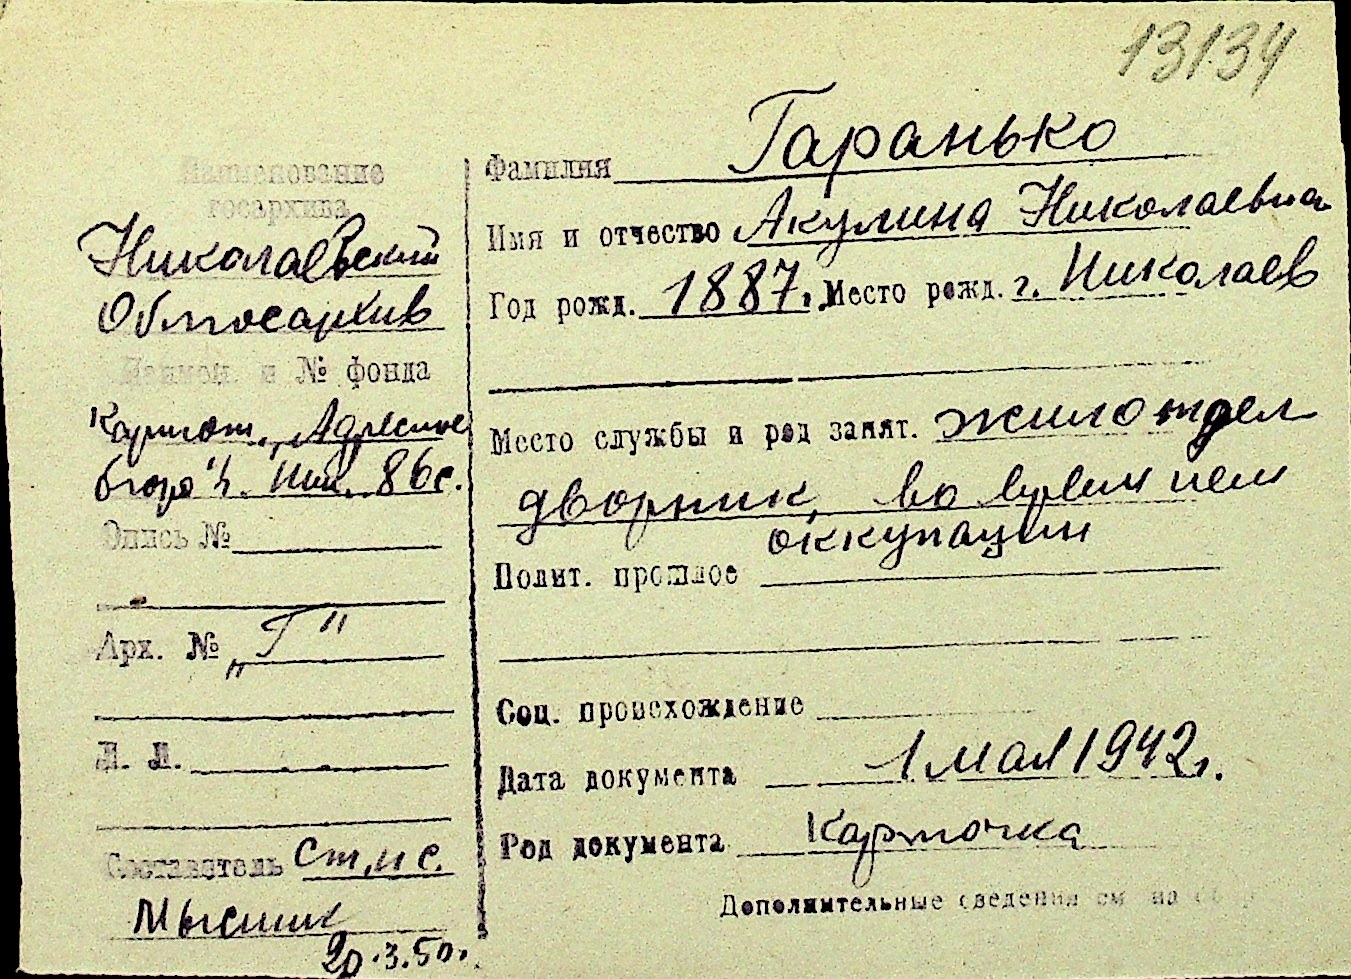 13134
Наименование
госархива
Николаевский
Облгосархив
Наимен. и № фонда
Картот. „Адресное
бюро" г. Ник. 86с.
Опись №
Арх. № „Г"
Л. Л.
Составитель Ст. н с.
Мысник
20.3.50.
Фамилия Гаранько
Имя и отчество Акулина Николаевна
Год рожд. 1887. Место рожд. г. Николаев
Место службы и род занят. жилотдел
дворник, во время нем
оккупации
Полит. прошлое
Соц. происхождение
Дата документа 1 мая 1942г.
Род документа Карточка
Дополнительные сведения см на